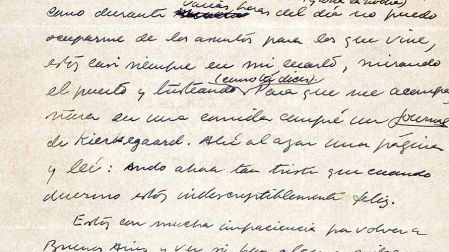 como durante varias horas del día no puedo
ocuparme de los asuntos para los que vine,
estoy casi siempre en mi cuarto, mirando
(como tú dices)
el puerto y tristeando. Para que me acompa-
ñara en una comida compré un Journal
de Kierkegaard. Abrí al azar una página
y leí: Ando ahora tan triste que cuando
duermo estoy indescriptiblemente feliz.
Estoy con mucha impaciencia por volver a
Buenos Aires y ver si